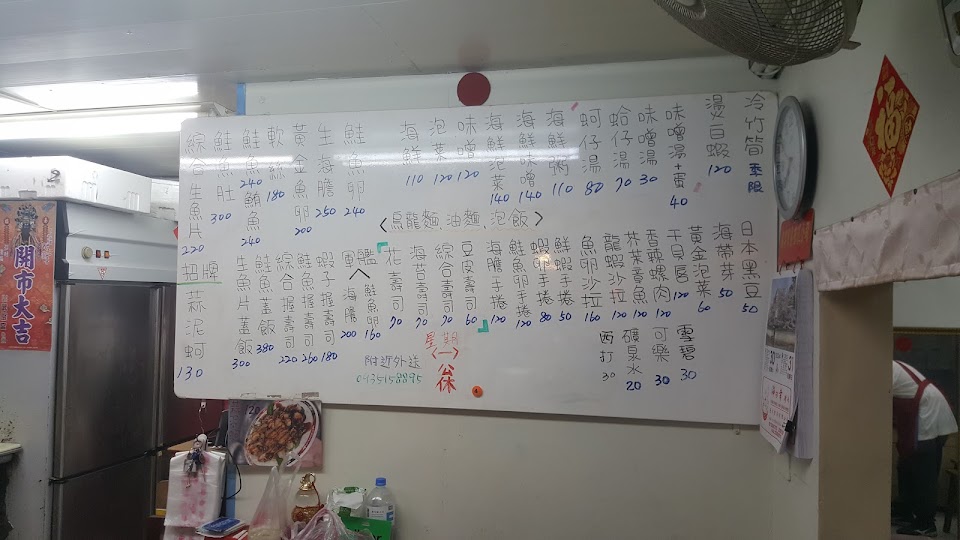 冷竹筍 季限
燙白蝦 120
味噌湯+蛋 40
味噌湯 30
蛤仔湯 70
蚵仔湯 80
海鮮粥 110
海鮮味噌 140
海鮮泡菜 140
味噌 120
泡菜 120
海鮮 110
〈烏龍麵、油麵、泡飯〉
鮭魚卵 240
生海膽 250
黃金魚卵 200
軟絲 180
鮭魚 240
鮪魚 240
鮭魚肚 300
綜合生魚片 220
日本黑豆 50
海帶芽 50
黃金泡菜 60
干貝唇 120
香螺肉 120
芥茉章魚 120
龍蝦沙拉 120
魚卵沙拉 160
鮮蝦手捲 50
蝦卵手捲 80
鮭魚卵手捲 120
海膽手捲 120
豆皮壽司 60
綜合壽司 70
海苔壽司 70
花壽司 70
軍艦
鮭魚卵 160
海膽 200
蝦子握壽司 180
鮭魚握壽司 260
綜合握壽司 220
鮭魚蓋飯 380
生魚片蓋飯 300
招牌
蒜泥蚵 130
雪碧 30
可樂 30
礦泉水 20
西打 30
星期
〈一〉
公休
附近外送
0435158895
開市大吉
福